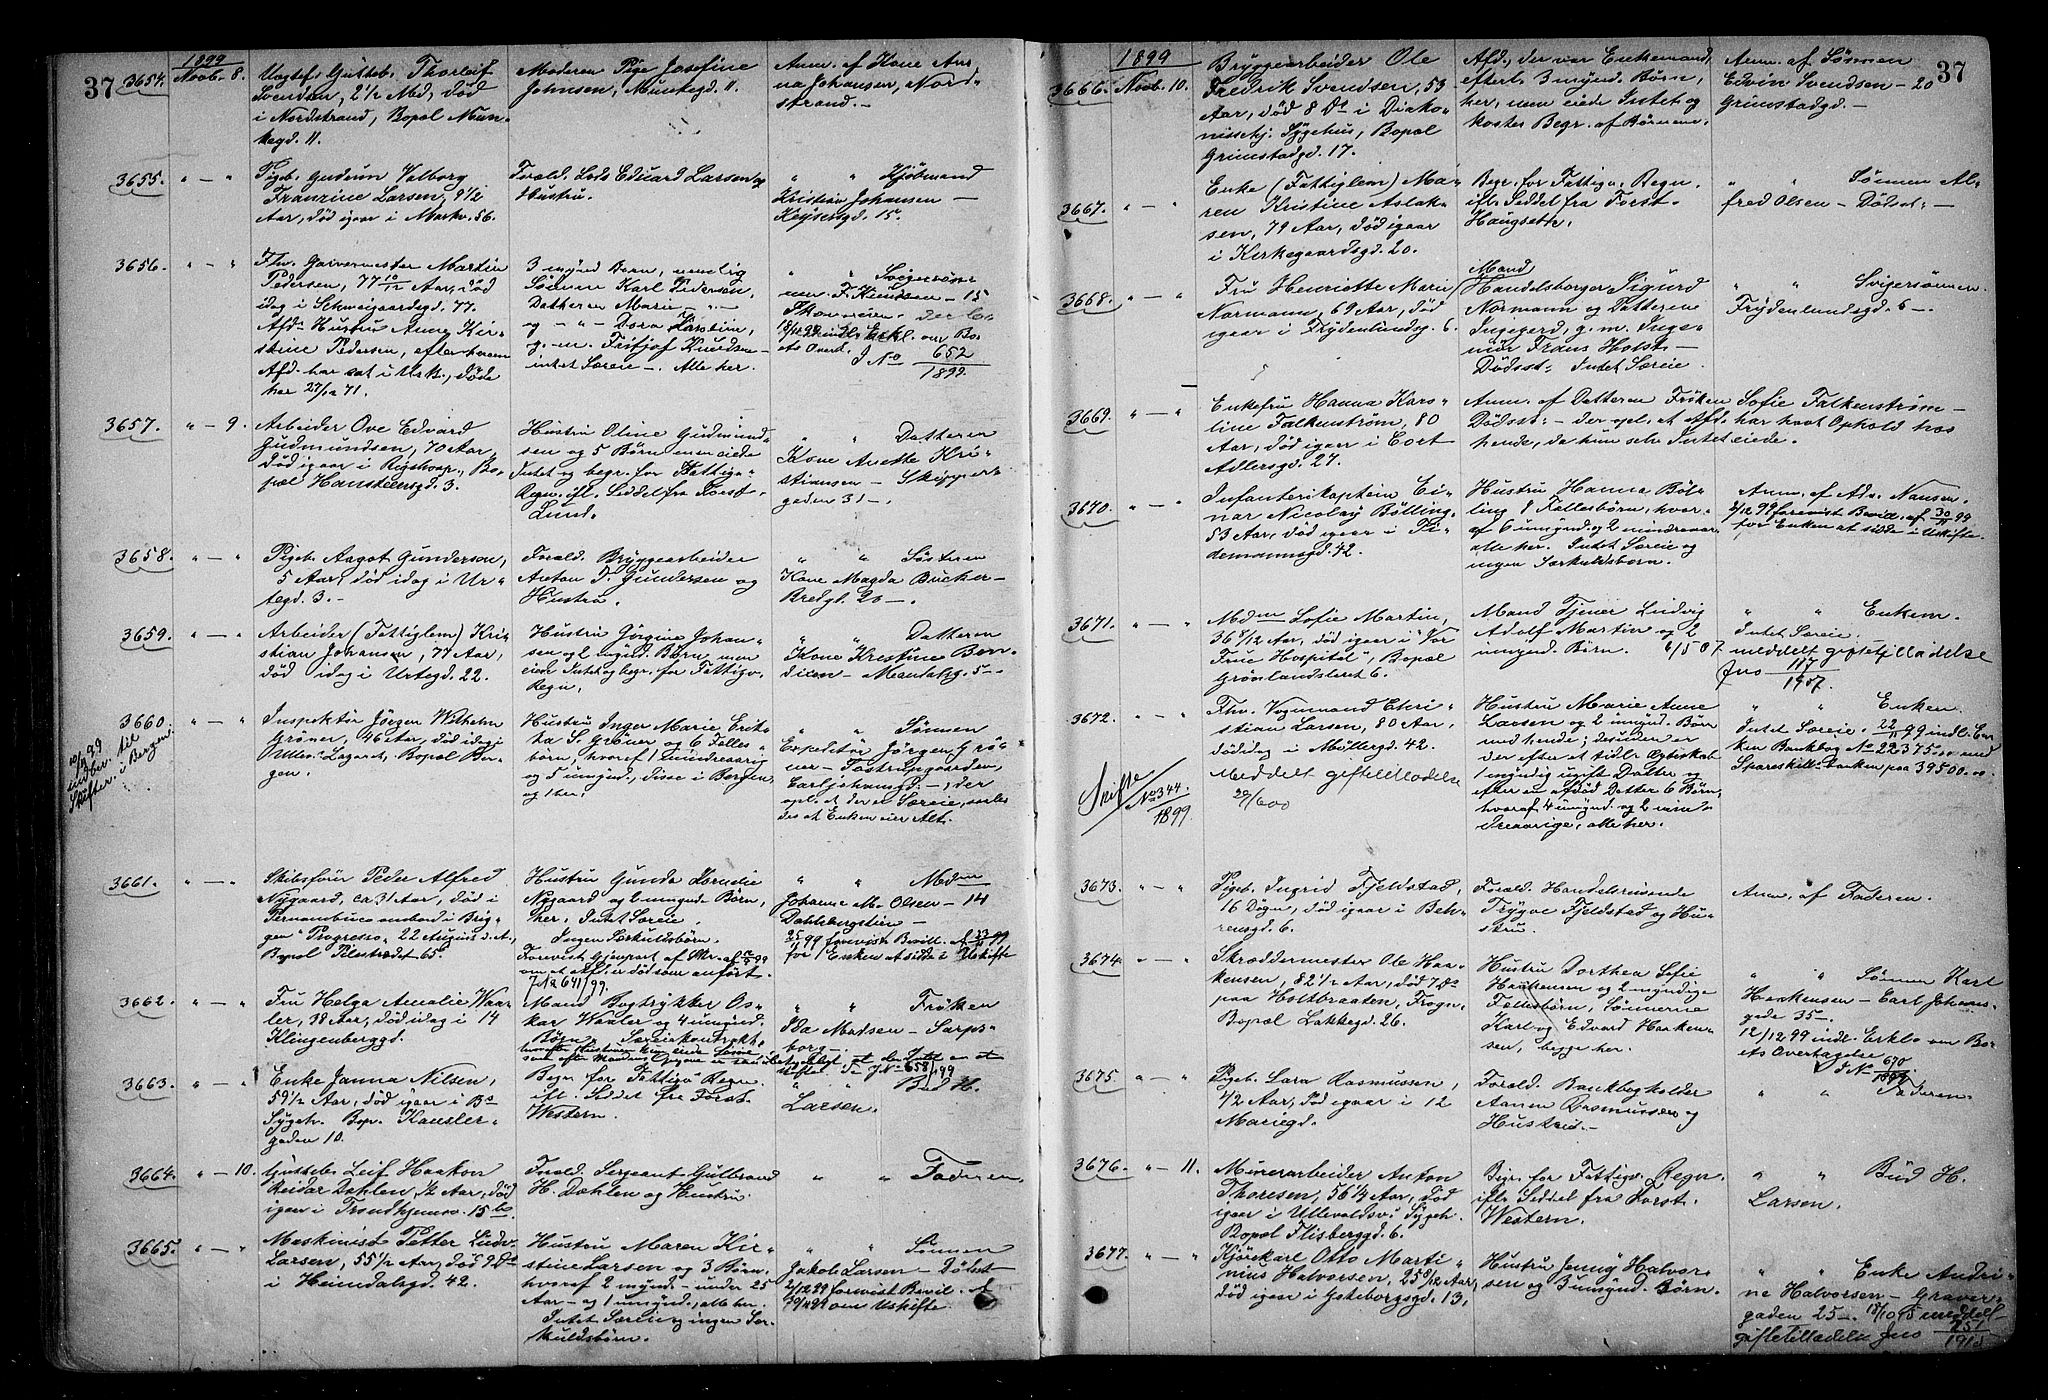 37
1899
3654. Novb. 8.
Uægtef. Gutteb. Thorleif
Svendsen, 2 1/2 Md, død
i Nordstrand, Bopæl Mun-
kegd. 11.
Moderen Pige Josefine
Johnsen, Munkegd. 11.
Anm. af Kone An-
na Johansen, Nord-
strand. —
3655. " — "
Pigeb. Gudrun Valborg
Franzine Larsen, 9 1/2
Aar, død igaar i Markv. 86.
Foræld. Lods Eduard Larsen og
Hustru.
" " Kjøbmand
Kristian Johansen —
Keysersgd. 15.
3656. " — "
Fhv. Garvermester Martin
Pedersen, 77 10/12 Aar, død
idag i Schweigaardsgd. 77.
Afd. Hustru Anne Kir-
stine Pedersen, efter hvem
Afd. har sat i Usk., døde
her 27/12 71.
3 mynd Børn, nemlig
Sønnen Karl Pedersen,
Datteren Marie " —
og — " — Dora
g. m. Fritjof Knudsen —
intet Særeie —. Alle her.
" " Svigersøn-
nen F. Knudsen — 15
indl. Erkl. om Bo-
ets Overt.
J No 652
1899.
3657. " — 9.
Arbeider Ove Edvard
Gudmundsen, 70 Aar,
død igaar i Rigshosp., Bo-
pæl Hansteensgd. 3.
Hustru Oline Gudmund-
sen og 5 Børn men eiede
Intet og begr. for Fattigv.
Regn. ifl. Seddel fra Forst.
Lund.
" " Datteren
Kone Anette Kri-
stiansen — Skipper-
gaden 31 —.
3658. " — "
Pigeb. Aagot Gundersen,
5 Aar, død idag i Ur-
tegd. 3. —
Foræld. Bryggearbeider
Anton T. Gundersen og
Hustru.
" " Søstren
Kone Magda Bucker —
Bredgd. 20 —.
3659. " — "
Arbeider (Fattiglem) Kri-
stian Johansen, 77 Aar,
død idag i Urtegd. 22.
Hustru Jørgine Johan-
sen og 2 mynd. Børn, men
eiede Intet og begr. for Fattigv.
Regn.
" " Datteren
Kone Kristine Ben-
dixen — Mandalsg. 5 —
3660. " — "
10/11 99
indber. til
Skifter. i Bergen.
Inspektør Jørgen Wilhelm
Grøner, 46 Aar, død idag i
Ullev. Lazaret, Bopæl Ber-
gen.
Hustru Inger Marie Erik-
ka S. Grøner og 6 Fælles-
børn, hvoraf 1 mindreaarig
og 5 umynd., disse i Bergen
og 1 her.
" " Sønnen
Expeditør Jørgen Grø-
ner — Tostrupgaarden,
Carl Johansgd. —, der
opl. at der er Særeie, saale-
des at Enken eier Alt.
3661. " — "
Skibsfører Peder Alfred
Nygaard, ca 31 Aar, død i
Pernambuco ombord i Brig-
gen "Progresso" 22 August d. A.,
Bopæl Pilestrædet 65.
Hustru Gunda Kornelie
Nygaard og 2 umynd. Børn,
her. Intet Særeie.
Ingen Særkuldsbørn.
om at Afd. er død som anført.
J No 641/99.
" " Mdm
Johanne M. Olsen — 14
Dahlebergstien —
25/11 99 forevist Bevill. af 23/11 99
for Enken at sidde i Uskifte
3662. " — "
Fru Helga Amalie Waa-
ler, 38 Aar, død idag i 14
Klingenberggd.
Mand Bogtrykker Os-
kar Waaler og 4 umynd.
Børn. Særeiekontrakt,
" " Frøken
Ida Madsen — Sarps-
borg —
J No 658/99
3663. " — "
Enke Janna Nilsen,
59 1/2 Aar, død igaar i Bs
Sygeh. Bop. Kansler-
gaden 10.
Begr. for Fattigv. Regn.
ifl. Seddel fra Forst.
Western.
" " Bud H.
Larsen.
3664. " — 10.
Gutteb. Leif Haakon
Reidar Dahlen, 1/2 Aar, død
igaar i Trondhjemsv. 15 bs
Foræld. Sergeant Gulbrand
H. Dahlen og Hustru
" " Faderen.
3665. " — "
Maskinist Petter Ludv.
Larsen, 55 1/2 Aar, død 9 Ds
i Heimdalsgd. 42.
Hustru Maren Kir-
stine Larsen og 3 Børn,
hvoraf 2 mynd — under 25
Aar — og 1 umynd., alle her.
Intet Særeie og ingen Sær-
kuldsbørn.
" " Sønnen
Jakob Larsen — Dødsst.
2/12 99 forevist Bevil. af
30/11 99 om Uskifte
37
1899
3666. Novb. 10.
Bryggearbeider Ole
Fredrik Svendsen, 53
Aar, død 8 Ds i Diako-
nissehj. Sygehus, Bopæl
Grimstadgd. 17.
Afd., der var Enkemand,
efterl. 3 mynd. Børn,
her, men eiede Intet og
kostes Begr. af Børnene.
Anm. af Sønnen
Edvin Svendsen — 20
Grimstadgd. —
3667. " — "
Enke (Fattiglem) Ma-
ren Kristine Aslak-
sen, 79 Aar, død igaar
i Kirkegaardsgd. 20.
Begr. for Fattigv. Regn.
ifl. Seddel fra Forst.
Haugseth.
" " Sønnen Al-
fred Olsen — Dødsst. —
3668. " — "
Fru Henriette Marie
Normann, 69 Aar, død
igaar i Frydenlundsg. 6.
Mand
Handelsborger Sigurd
Normann og Datteren
Ingegerd, g. m. Inge-
niør Frans Holst —
Dødsst. Intet Særeie.
" " Svigersønnen
Frydenlundsgd. 6 —.
3669. " — "
Enkefru Hanna Karo-
line Falkenstrøm, 80
Aar, død igaar i Cort
Adlersgd. 27.
Anm. af Datteren Frøken Sofie Falkenstrøm —
Dødsst. — der opl. at Afd. har havt Ophold hos
hende, da hun selv Intet eiede.
3670. " — "
Infanterikaptein Ei-
nar Nicolay Bølling
53 Aar, død igaar i Ti-
demannsgd. 42.
Hustru Hanna Bøl-
ling 8 Fællesbørn, hvor-
af 6 umynd og 2 mindreaar.
alle her. Intet Særeie og
ingen Særkuldsbørn.
Anm. af Adv. Nansen.
2/12 99 forevist Bevill. af 30/11 99
for Enken at sidde i Uskifte.
3671. " — "
Mdm Sofie Martin,
36 8/12 Aar, død igaar i "Vor
Frue Hospital", Bopæl
Grønlandsleret 6.
Mand Tjener Ludvig
Adolf Martin og 2
umynd. Børn.
" " Enkem.
Intet Særeie.
6/5 07 meddelt giftetilladelse
Jno 117
1907.
3672. " — "
Skifte
No 344
1899.
Fhv. Vognmand Chri-
stian Larsen, 80 Aar,
død idag i Møllergd. 42.
Meddelt giftetilladelse
20/6 00
Hustru Marie Anne
Larsen og 2 umynd. Børn
med hende; desuden er
der efter et tidl. Ægteskab
1 myndig ugift Datter og
efter en afdød Datter 6 Børn,
hvoraf 4 umynd. og 2 min-
dreaarige, alle her.
" " Enken.
Intet Særeie. 22/11 99 indl. En-
ken Bankbog No 22375 med
Spareskill. Banken paa 39500.
3673. " — "
Pigeb. Ingrid Fjeldstad,
16 Døgn, død igaar i Beh-
rensgd. 6.
Foræld. Handelsreisende
Trygve Fjeldstad og Hu-
stru.
Anm. af Faderen.
3674. " — "
Skræddermester Ole Haa-
kensen, 82 1/2 Aar, død 7 Ds
paa Holtbraaten, Frogn.
Bopæl Lakkegd. 26.
Hustru Dorthea Sofie
Haakensen og 2 myndige
Fællesbørn, Sønnerne
Karl og Edvard Haaken-
sen, begge her.
" " Sønnen Karl
Haakensen — Carl Johans-
gade 35 —.
12/12 99 indl. Erklæ. om Bo-
ets Overtagelse
J No 670
1899
3675 " — "
Pigeb. Lara Rasmussen,
1/2 Aar, død igaar i 12
Mariegd.
Foræld. Bankbogholder
Aanen Rasmussen og
Hustru. —
" " Faderen.
3676. " — 11.
Murerarbeider Anton
Thoresen, 56 1/2 Aar, død
igaar i Ullevoldsv. Sygeh.
Bopæl Flisberggd. 6.
Begr. for Fattigv. Regn.
ifl. Seddel fra Forst.
Western.
" " Bud H.
Larsen.
3677. " — "
Kjørekarl Otto Marti-
nius Halvorsen, 25 8/12 Aar,
død igaar i Gøteborgsgd. 13,
Hustru Jenny Halvor-
sen og 3 umynd. Børn.
" " Enke Andri-
ne Halvorsen — Graver-
gaden 25 —. 18/10 15 meddelt
giftetilladelse Jno 251
1915